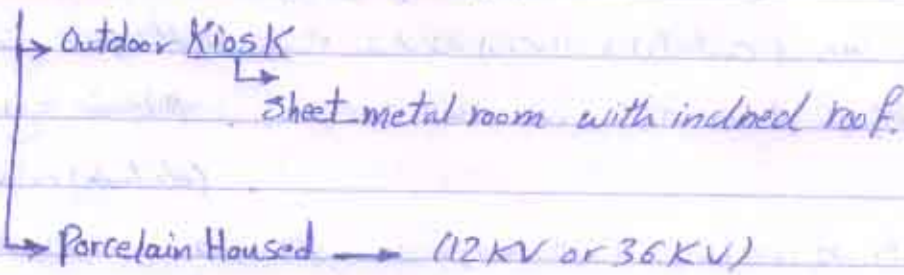 → Outdoor Kiosk
↳ Sheet metal room with inclined roof.
→ Porcelain Housed → (12 KV or 36 KV)